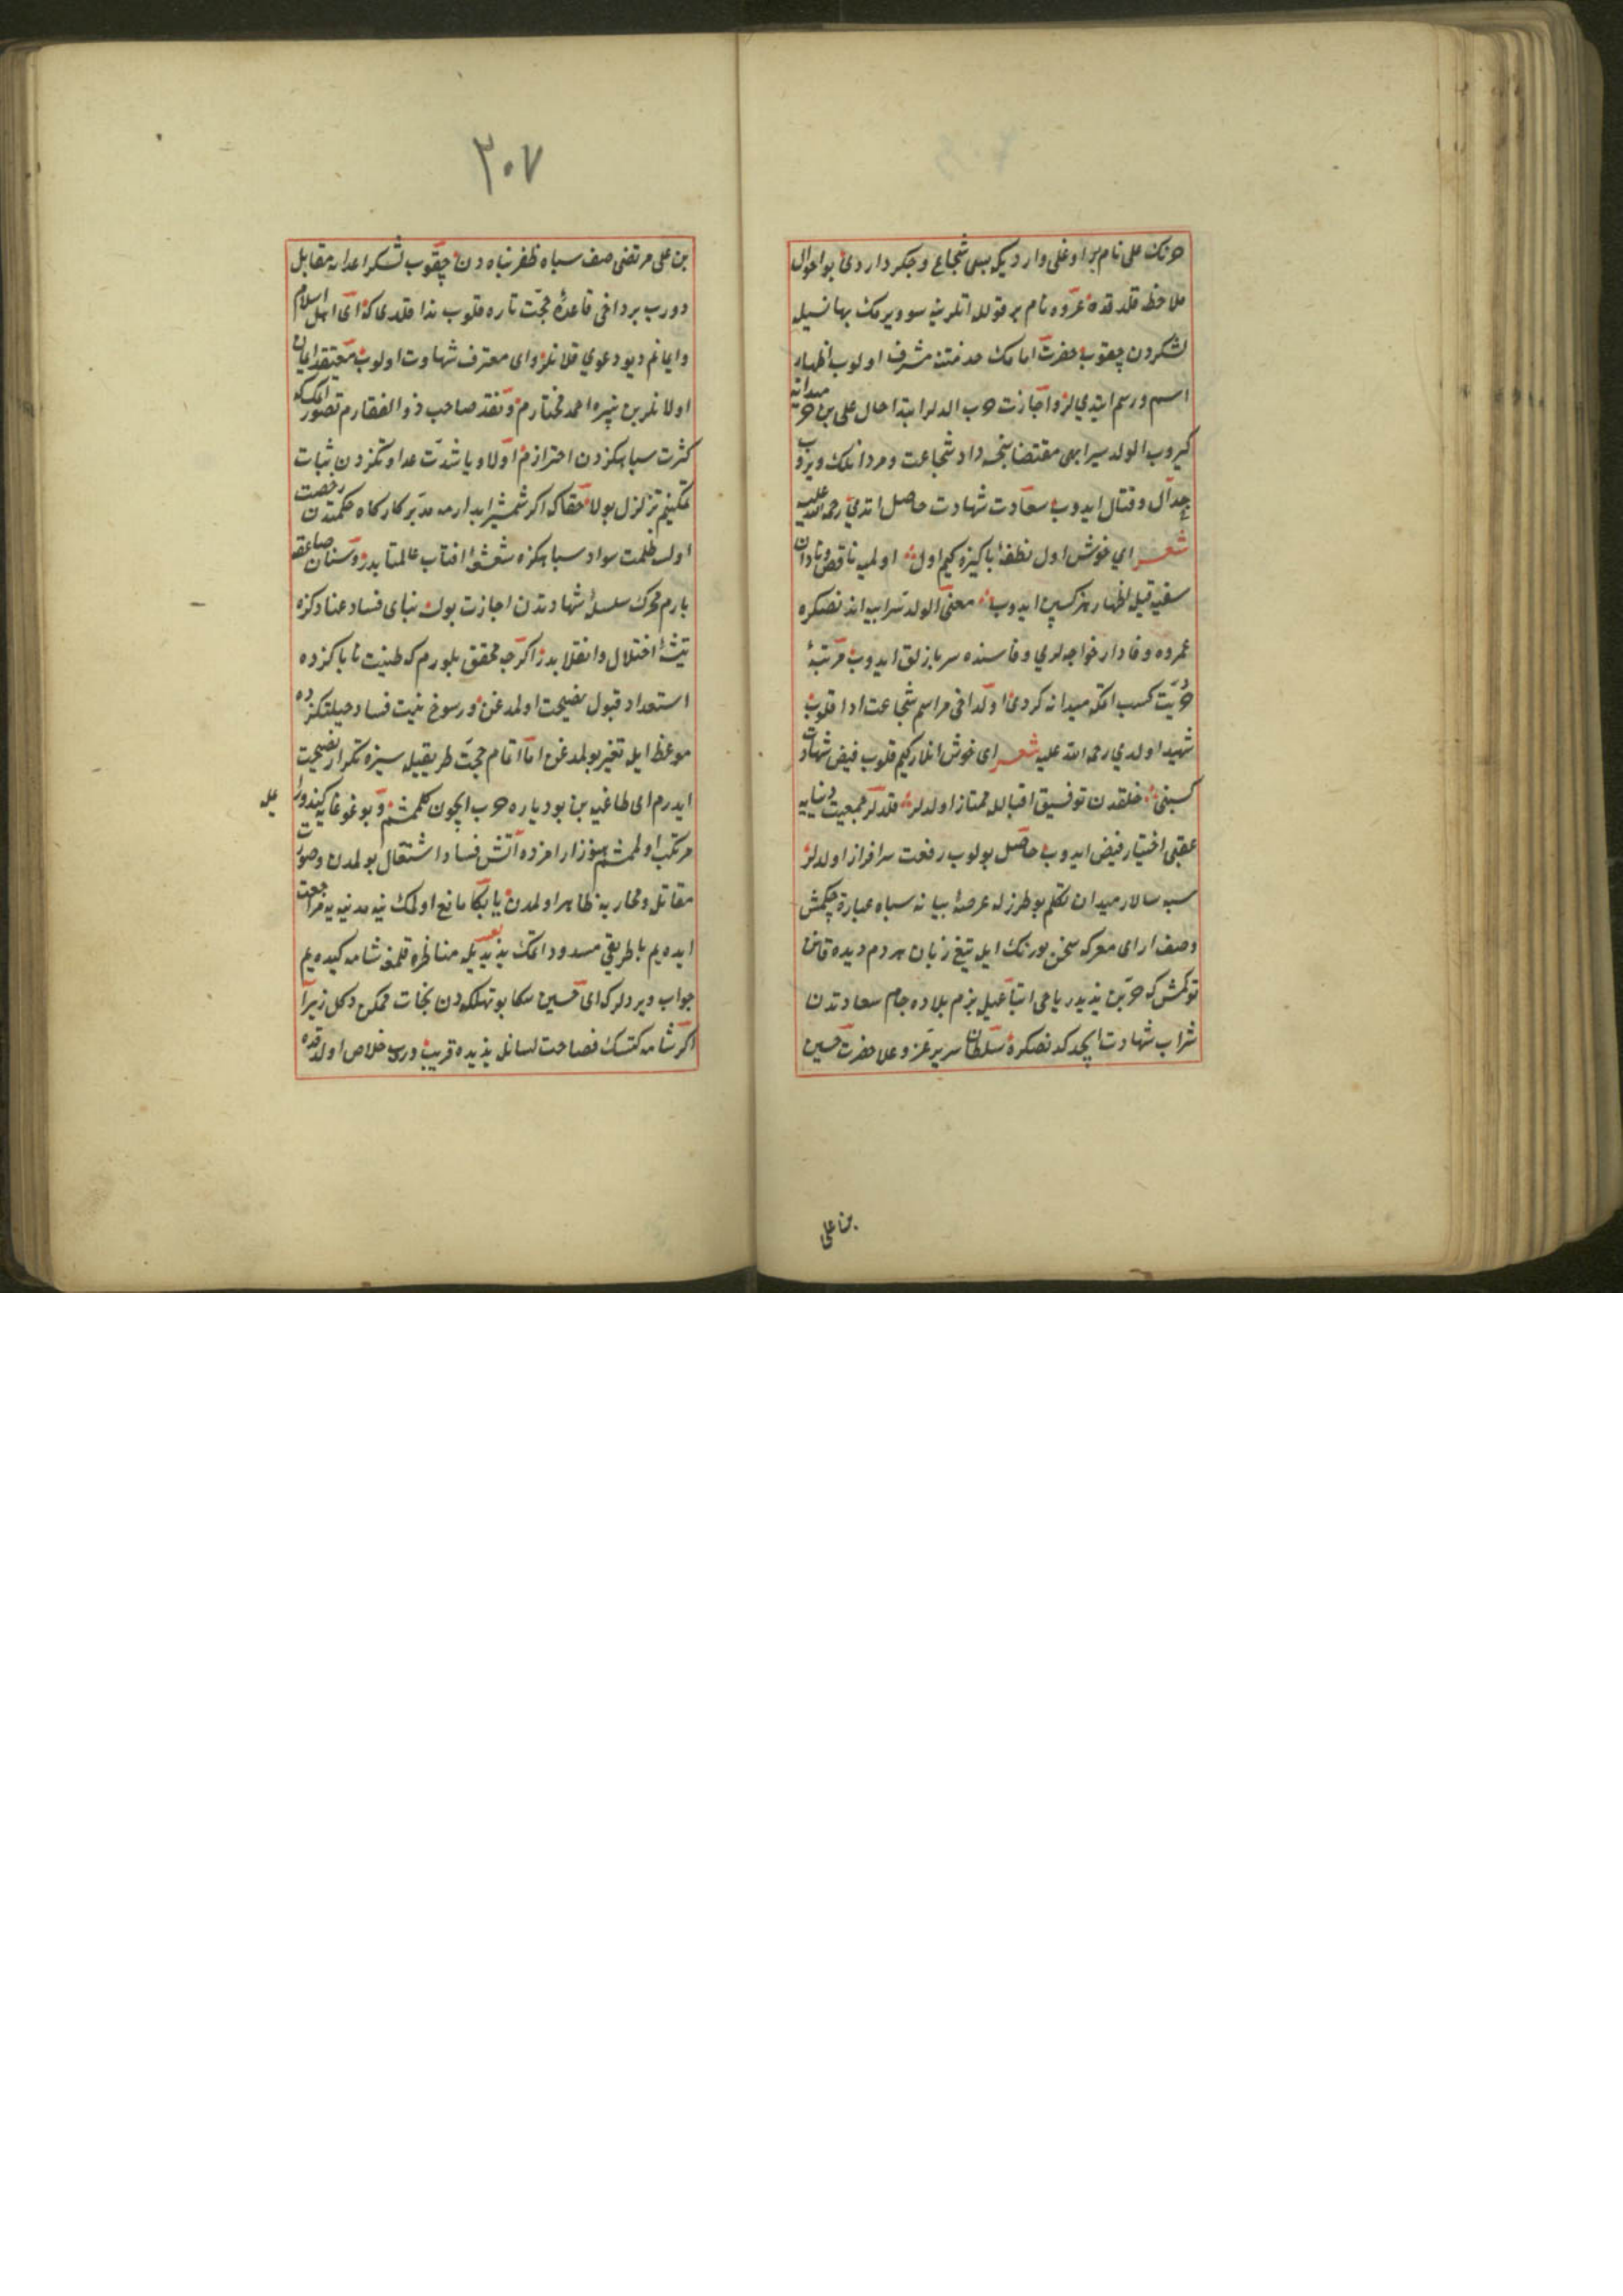 حرنك علی نام بر اوغلی وار دیكه بسی شجاع و جكردار دی بو احوال
ملاحظه قلدقده عروه نام بر قولله اتلرینه سو ویرمك بهانسیله
لشكردن چقوب حضرت امامك خدمتنه مشرف اولوب اظهار
اسم و رسم ایتدیلر و اجازت حرب الدلر ابتدا حال علی بن حر میدانه
كیروب الولد سر ابیه مقتضاسنجه داد شجاعت و مردانلك ویروب
جدال و قتال ایدوب سعادت شهادت حاصل اتدی رحمة الله علیه
شعر ای خوش اول نطفهٔ پاكیزه كیم اول اولمیه ناقص و نادان
سفیه قیله اظهار هنر كسبن ایدوب معنی الولد سر ابیه اندنصكره
عروه وفادار خواجه لری وفاسنده سربازلق ایدوب مرتبهٔ
حریت كسب اتمكه میدانه كردی اولداخی مراسم شجاعت ادا قلوب
شهید اولدی رحمة الله علیه شعر ای خوش انلار كیم قلوب فیض شهادت
كسبنی خلقدن توفیق اقبالله ممتاز اولدلر قلدلر جمعیت دنیایه
عقبی اختیار فیض ایدوب حاصل بولوب رفعت سرافراز اولدلر
سپه سالار میدان تكلم بو طرزله عرصهٔ بیانه سپاه عبارة چكمش
وصف ارای معركه سخن بو رنك ایله تیغ زبان مردم دیده قانن
توكمش كه حر بن یزید ریاحی اتباعیله بزم بلاده جام سعادتدن
شراب شهادت ایچدكدنصكره سلطان سریر عز و علا حضرت حسین
بن علی
٣٠٧
بن علی مرتضی صف سپاه ظفر پناه دن چقوب لشكر اعدایه مقابل
دورب بر داخی قاعدهٔ حجت تازه قلوب ندا قلدی كه ای اهل اسلام
و ایمانم دیو دعوی قلانلر و ای معترف شهادت اولوب معتقد ایمان
اولانلر بن نبیره احمد مختارم و نقد صاحب ذو الفقارم تصور اتمك كه
كثرت سپاهكزدن احترازم اولا و یا شدت عداوتكزدن ثبات
تمكینم تزلزل بولا حقا كه اكر شمشیر ابدارمه مدبر كاركاه حكمتدن رخصت
اولسه ظلمت سواد سپاهكزه شعشهٔ افتاب عالمتابدر و سنان صاعقه
بارم محرك سلسلهٔ شهادتدن اجازت بولسه بنای فساد عنادكزه
تیشهٔ اختلال و انقلابدر اكرچه محقق بلورم كه طینت ناپاكزده
استعداد قبول نصیحت اولمدغن و رسوخ نیت فساد جبلتكزده
موعظه ایله تغیر بولمدغن اما اتمام حجت طریقیله سیزه تكرار نصیحت
ایدرم ای طاغیه بن بو دیاره حرب ایچون كلمشم و بو غوغایه كیندوزله
مرتكب اولممشم هنوز ارامزده اتش فساد اشتعال بولمدن و صورت
مقاتله و محاربه ظاهر اولمدن یا بكا مانع اولمك ینه مدینه یه مراجعت
ایده یم یا طریقی مسدود اتمك یزید یله مناظره قلمغه شامه كیده یم
جواب ویردلر كه ای حسین سكا بو تهلكه دن نجات ممكن دكل زیرا
اكر شامه كتسك فصاحت لسانله یزیده فریب ورب خلاص اولدقده